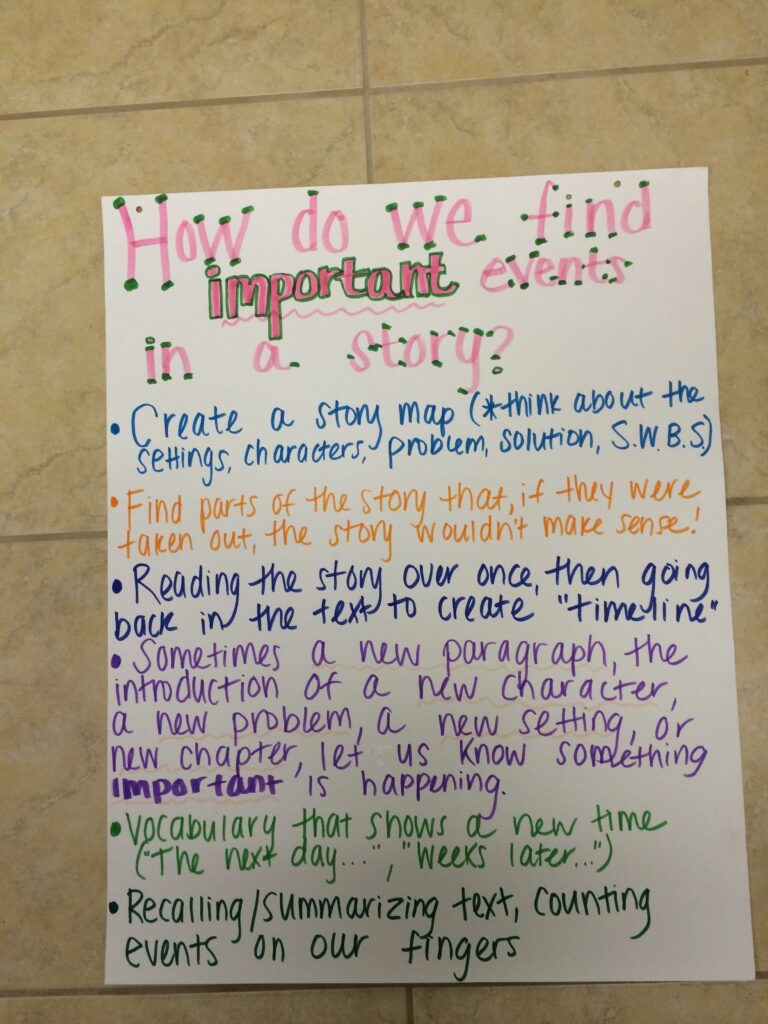 How do we find
important events
in a story?
• Create a story map (*think about the
settings, characters, problem, solution, S.W.B.S.)
• Find parts of the story that, if they were
taken out, the story wouldn't make sense!
• Reading the story over once, then going
back in the text to create "timeline"
• Sometimes a new paragraph, the
introduction of a new character,
a new problem, a new setting, or
new chapter, let us know something
important is happening.
• Vocabulary that shows a new time
("The next day...", "Weeks later...")
• Recalling/summarizing text, counting
events on our fingers